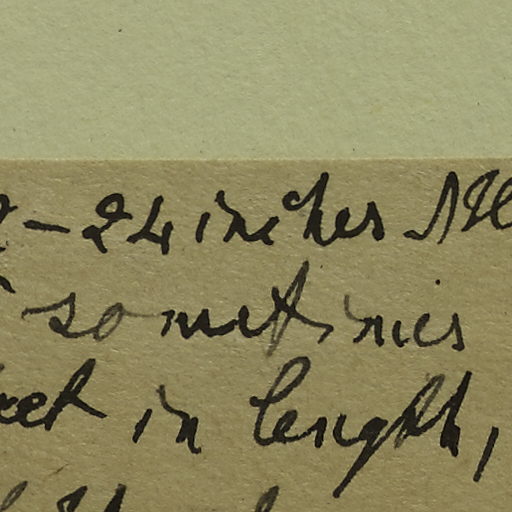 - 24 inches
sometimes
feet in length,